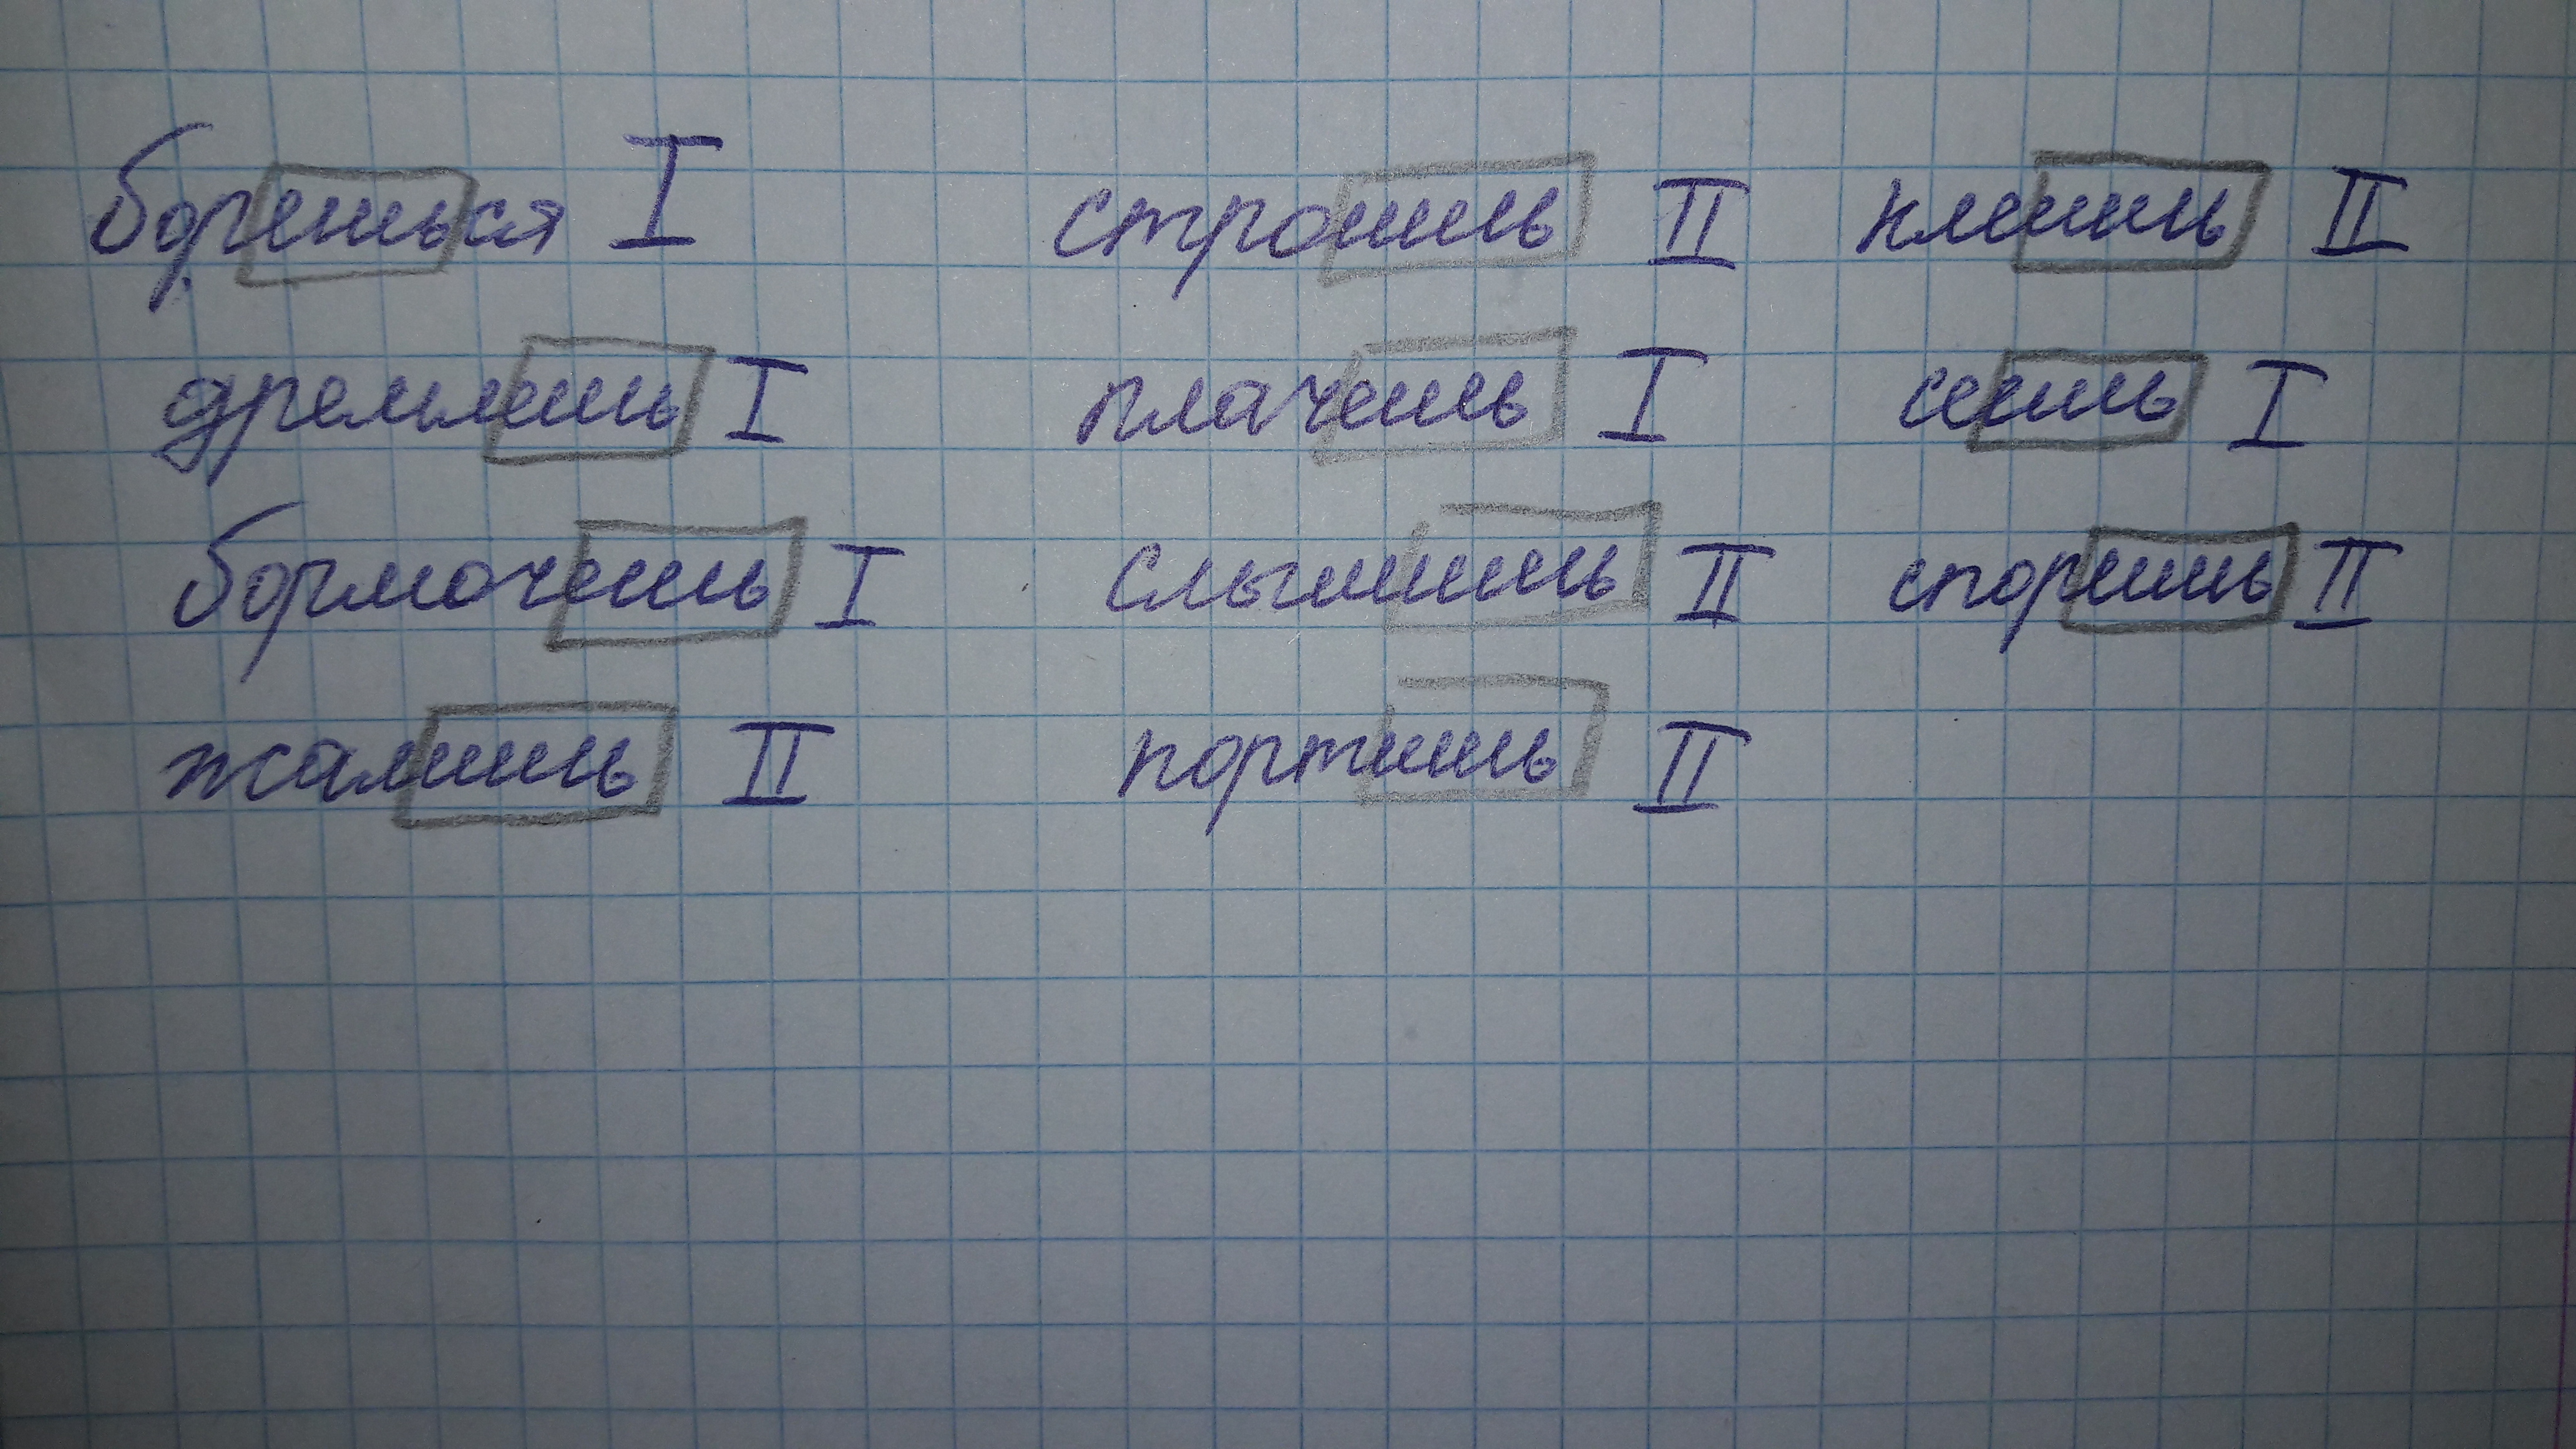 борешься I строишь II клеишь II
дремлешь I плачешь I сеешь I
бормочешь I слышишь II споришь II
жалишь II портишь II